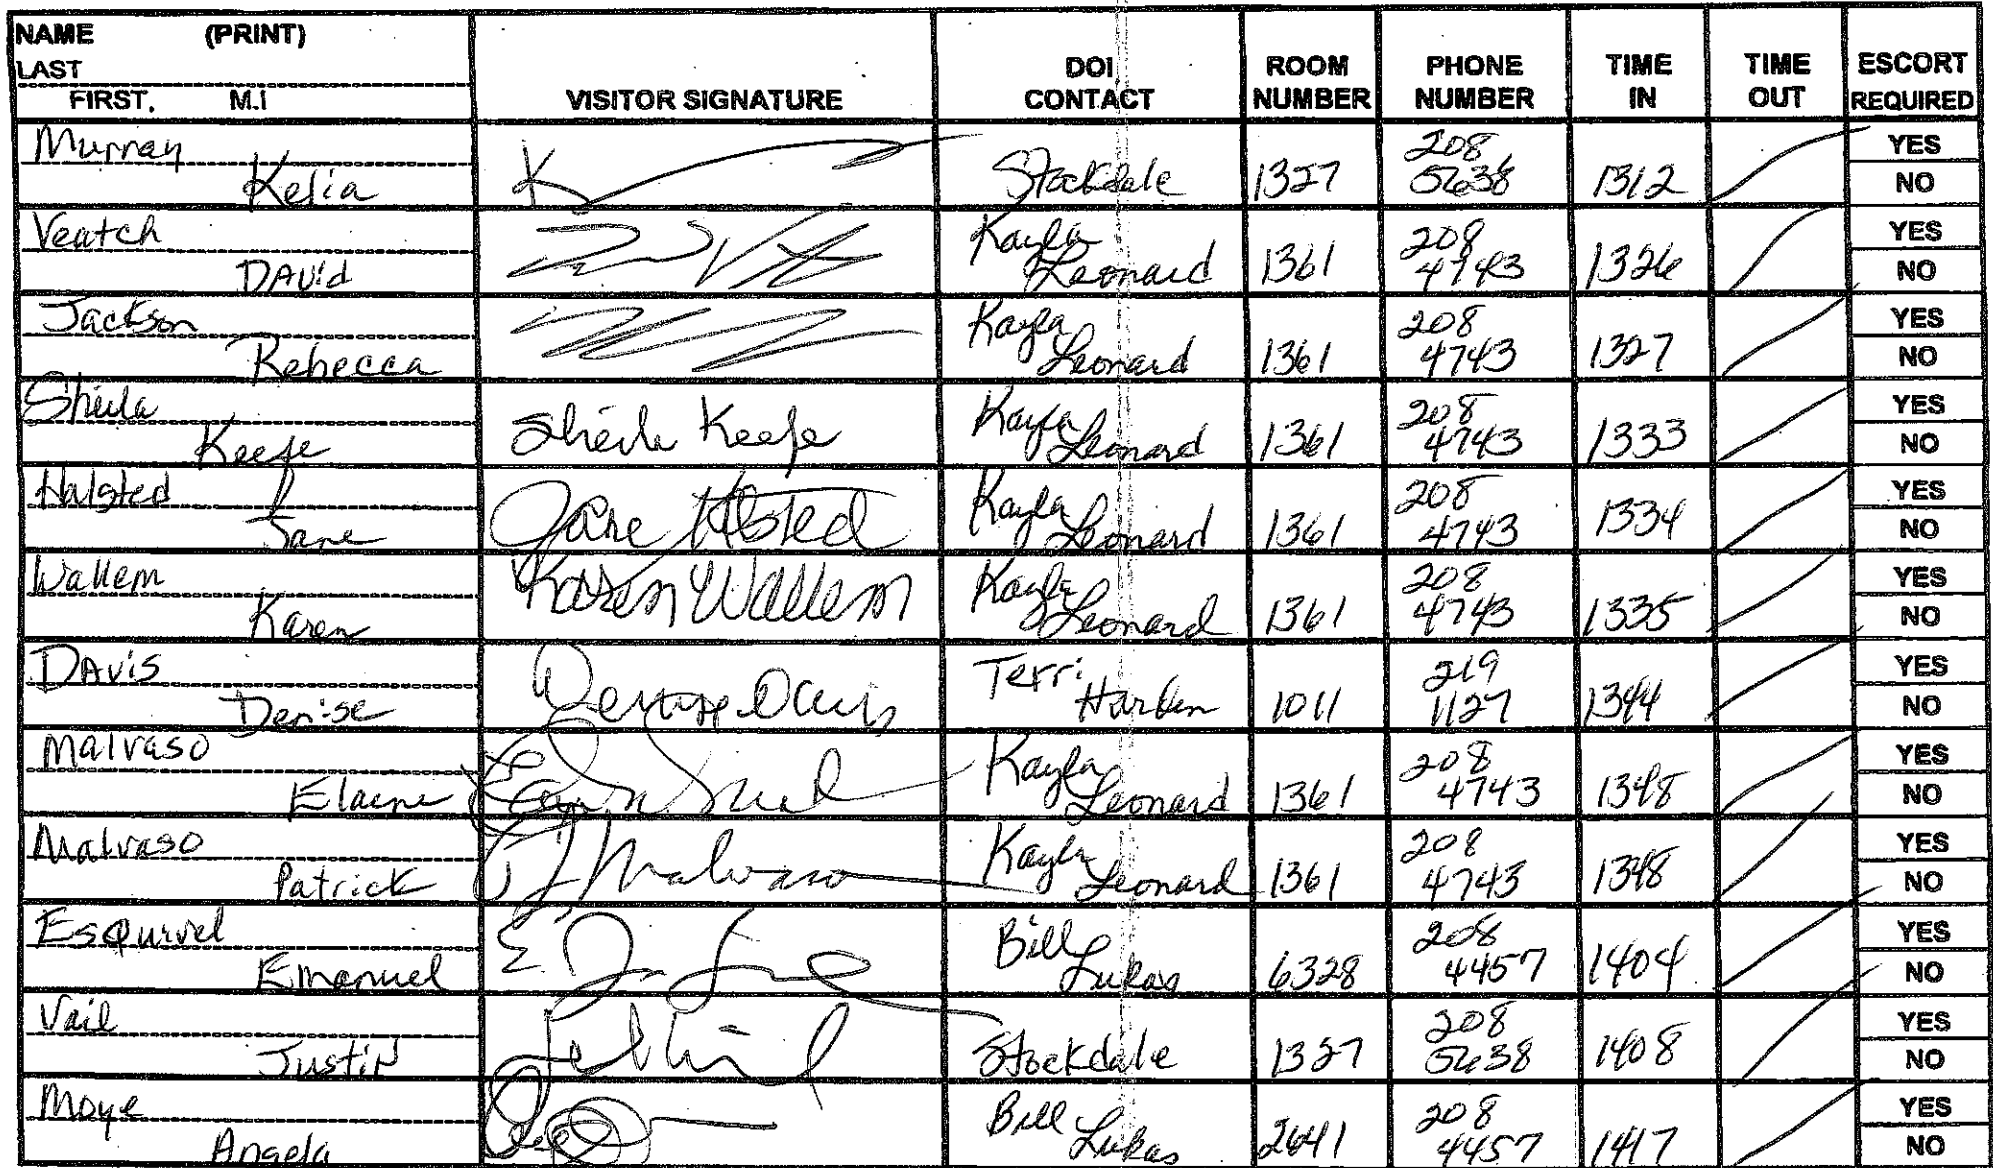 NAME (PRINT)
LAST
FIRST, M.I
VISITOR SIGNATURE
DOI CONTACT
ROOM NUMBER
PHONE NUMBER
TIME IN
TIME OUT
ESCORT REQUIRED
Murray
Kelia K Stockdale 1327 208 5638 1312 YES NO
Veatch
David Kayla Leonard 1361 208 4743 1326 YES NO
Jackson
Rebecca Kayla Leonard 1361 208 4743 1327 YES NO
Sheila
Keefe Sheila Keefe Kayla Leonard 1361 208 4743 1333 YES NO
Halsted
Jane Jane Halsted Kayla Leonard 1361 208 4743 1334 YES NO
Wallem
Karen Karen Wallem Kayla Leonard 1361 208 4743 1335 YES NO
Davis
Denise Denise Davis Terri Harben 1011 219 1127 1344 YES NO
Malvaso
Elaine Kayla Leonard 1361 208 4743 1348 YES NO
Malvaso
Patrick Malvaso Kayla Leonard 1361 208 4743 1348 YES NO
Esquivel
Emanuel Bill Lukas 6328 208 4457 1404 YES NO
Vail
Justin Stockdale 1327 208 5638 1408 YES NO
Moye
Angela Bill Lukas 2641 208 4457 1417 YES NO